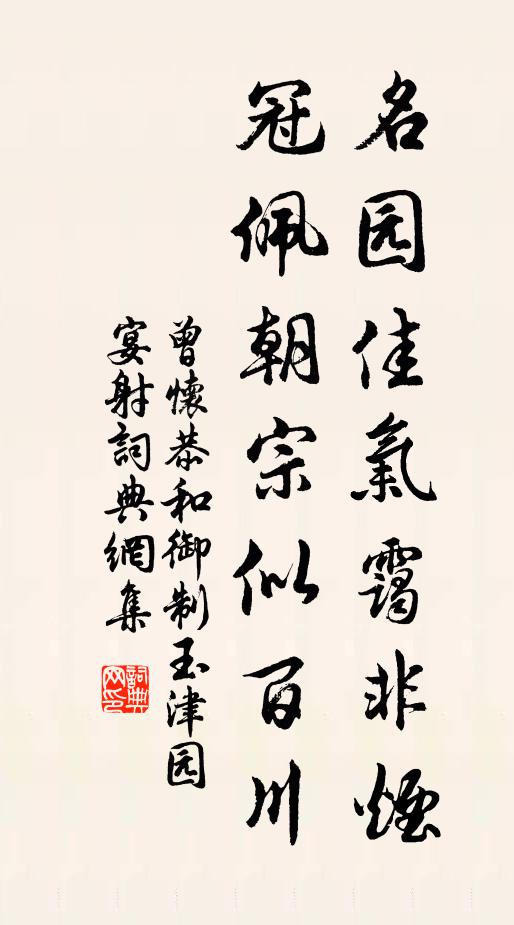 名园佳氣靄非煙
冠佩朝宗似百川
曾懷恭和御制玉津园
宴射詞典網集
詞典网印